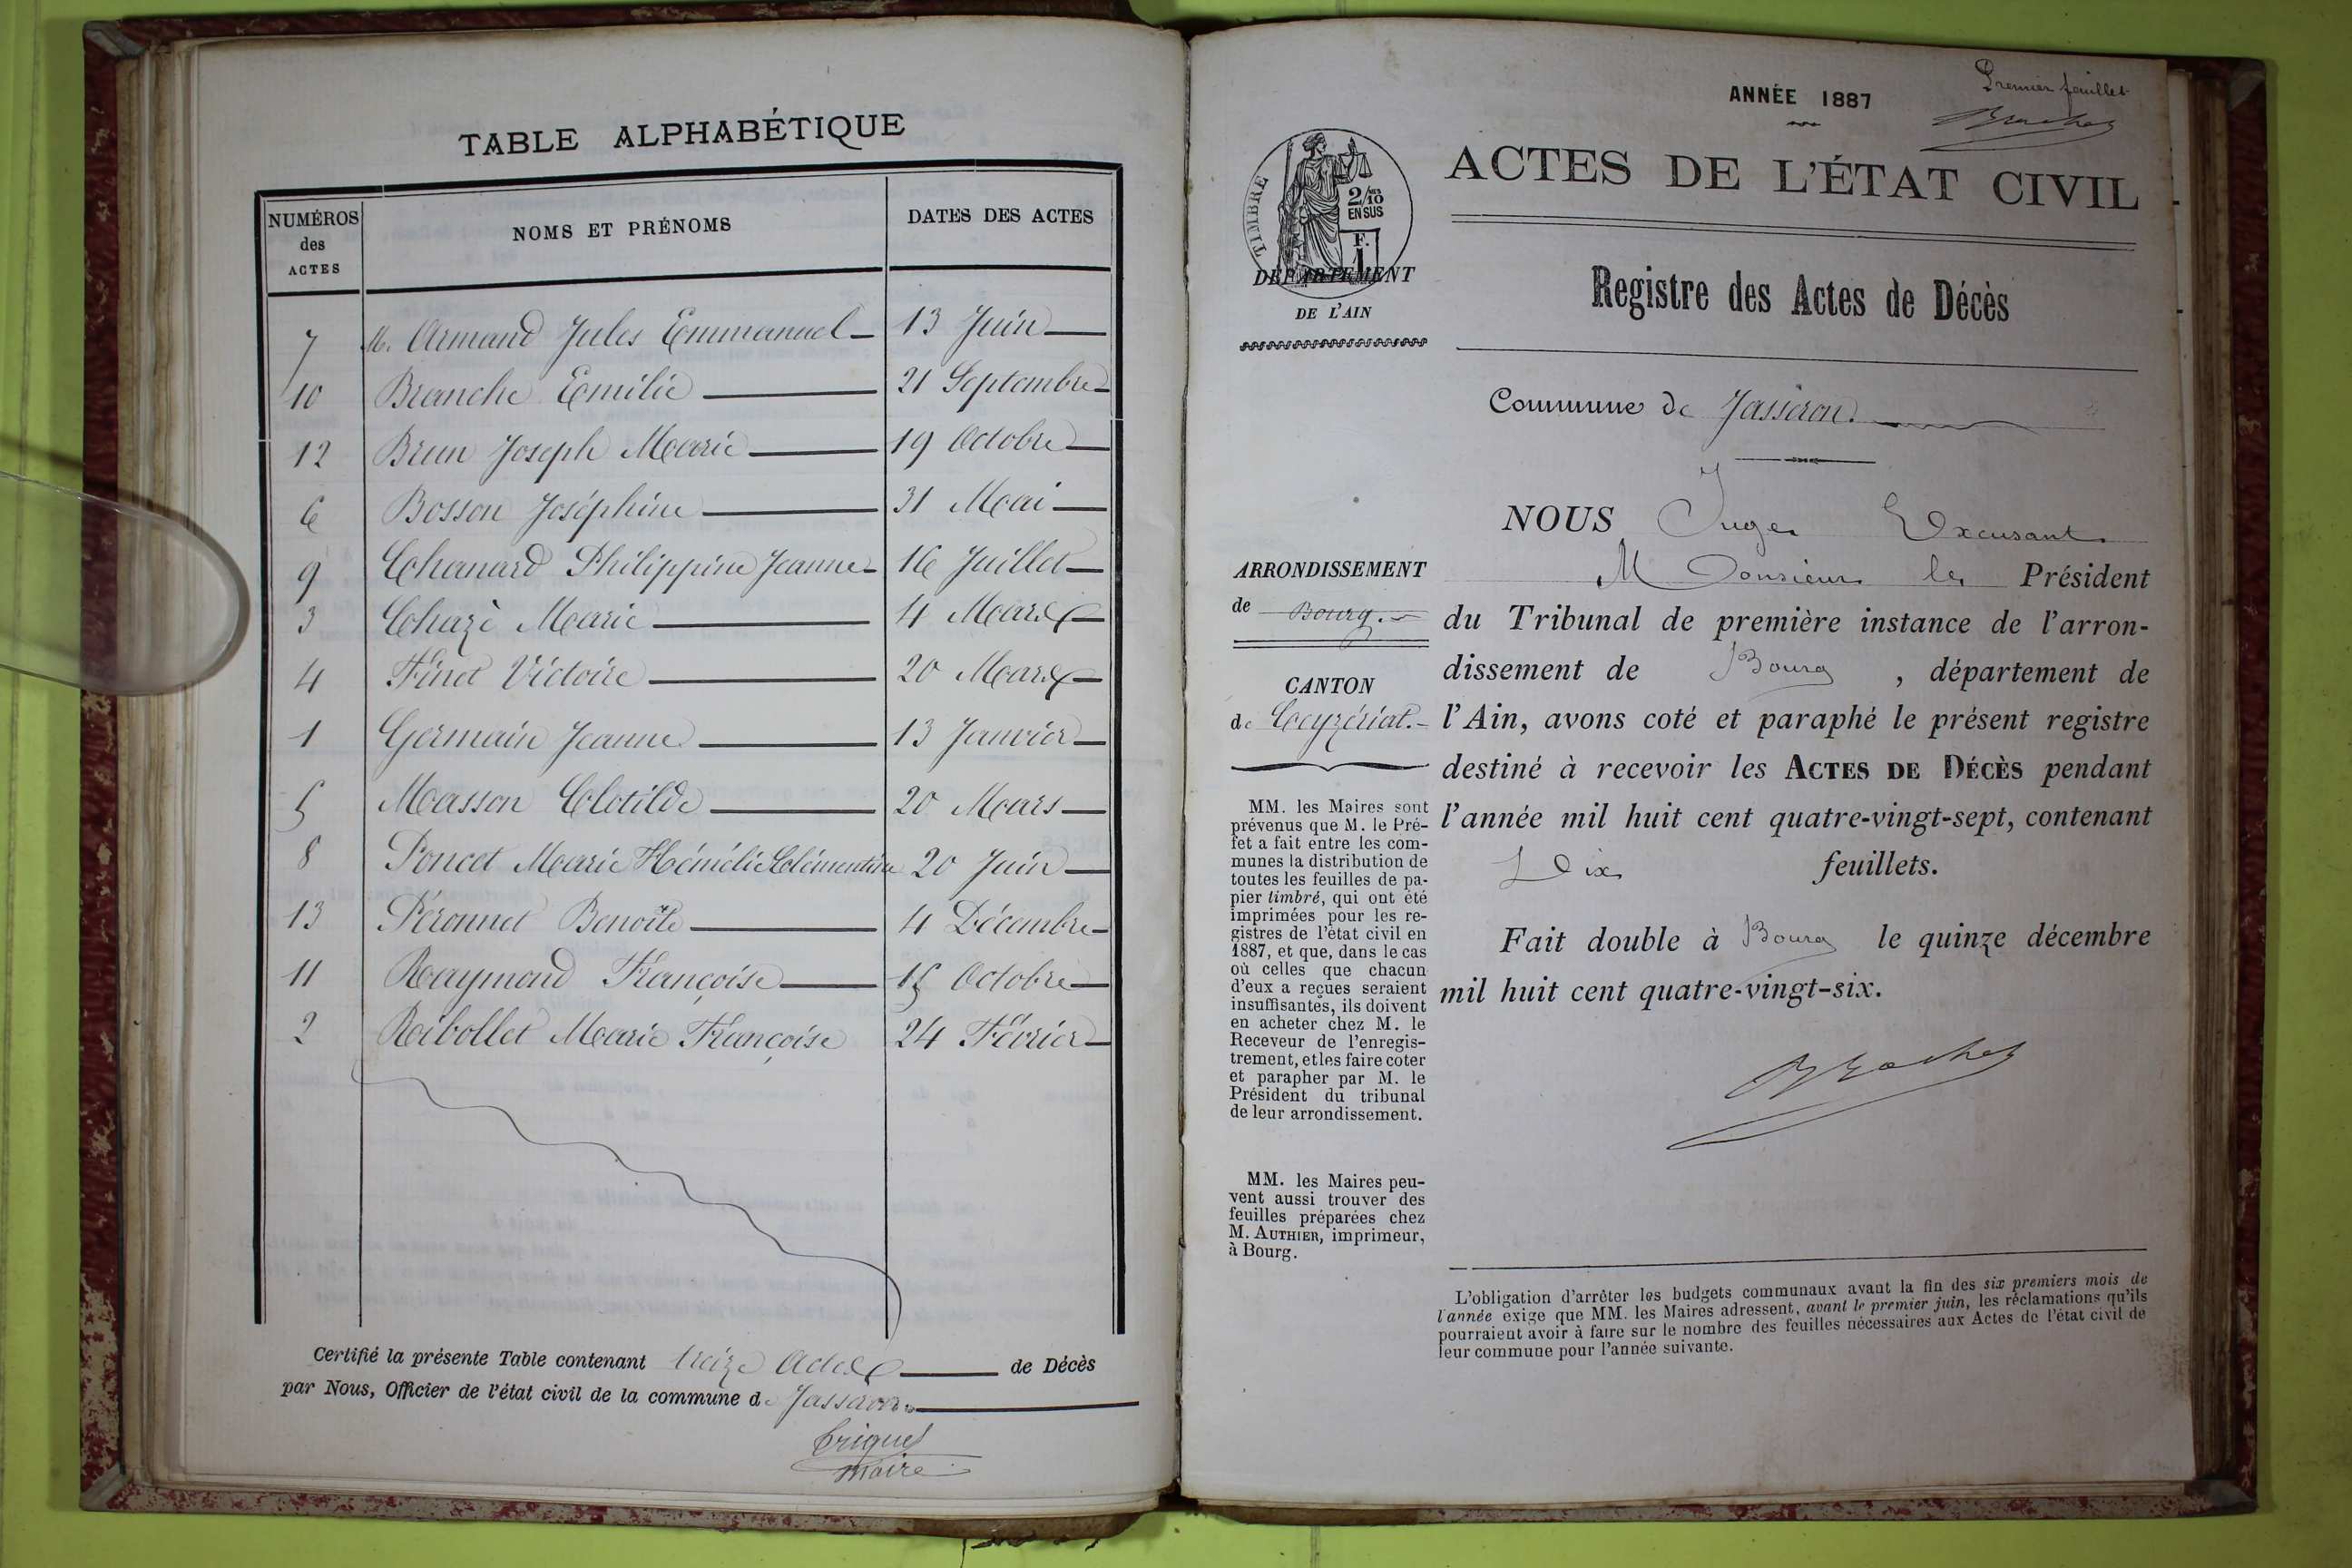 TABLE ALPHABÉTIQUE
NUMÉROS des ACTES NOMS ET PRÉNOMS DATES DES ACTES
7 M. Armand Jules Emmanuel 13 Juin
10 Branche Emilie 21 Septembre
12 Brun Joseph Marie 19 Octobre
6 Bosson Joséphine 31 Mai
9 Chanard Philippine Jeanne 16 Juillet
3 Chazé Marie 4 Mars
4 Finet Victoire 20 Mars
1 Germain Jeanne 13 Janvier
5 Masson Clotilde 20 Mars
8 Poncet Marie Clémentine 20 Juin
13 Péronnet Benoîte 4 Décembre
11 Raymond Françoise 15 Octobre
2 Ribollet Marie Françoise 24 Février
Certifié la présente Table contenant treize actes de Décès
par Nous, Officier de l'état civil de la commune de Jasseron
maire
Premier feuillet
ANNÉE 1887
ACTES DE L'ÉTAT CIVIL
TIMBRE
2/10 EN SUS
F. 1
DÉPARTEMENT
DE L'AIN
Registre des Actes de Décès
Commune de Jasseron
NOUS Juge Excusant
Monsieur le Président
du Tribunal de première instance de l'arron-
dissement de Bourg, département de
l'Ain, avons coté et paraphé le présent registre
destiné à recevoir les ACTES DE DÉCÈS pendant
l'année mil huit cent quatre-vingt-sept, contenant
Dix feuillets.
Fait double à Bourg le quinze décembre
mil huit cent quatre-vingt-six.
ARRONDISSEMENT
de Bourg.
CANTON
de Ceyzériat.
MM. les Maires sont
prévenus que M. le Pré-
fet a fait entre les com-
munes la distribution de
toutes les feuilles de pa-
pier timbré, qui ont été
imprimées pour les re-
gistres de l'état civil en
1887, et que, dans le cas
où celles que chacun
d'eux a reçues seraient
insuffisantes, ils doivent
en acheter chez M. le
Receveur de l'enregis-
trement, et les faire coter
et parapher par M. le
Président du tribunal
de leur arrondissement.
MM. les Maires peu-
vent aussi trouver des
feuilles préparées chez
M. AUTHIER, imprimeur,
à Bourg.
L'obligation d'arrêter les budgets communaux avant la fin des six premiers mois de
l'année exige que MM. les Maires adressent, avant le premier juin, les réclamations qu'ils
pourraient avoir à faire sur le nombre des feuilles nécessaires aux Actes de l'état civil de
leur commune pour l'année suivante.